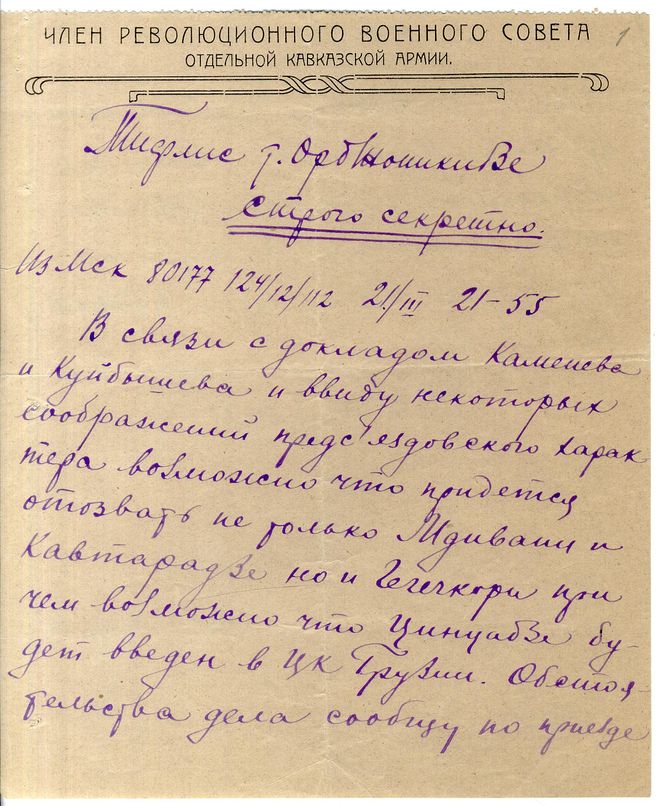 ЧЛЕН РЕВОЛЮЦИОННОГО ВОЕННОГО СОВЕТА
1
ОТДЕЛЬНОЙ КАВКАЗСКОЙ АРМИИ.
Тифлис т. Орджоникидзе
Строго секретно.
Из Мск 80177 124/12/112 21/III 21-55
В связи с докладом Каменева
и Куйбышева и ввиду некоторых
соображений предс'ездовского харак
тера возможно что придется
отозвать не только Мдивани и
Кавтарадзе но и Гегечкори при
чем возможно что Цинцадзе бу-
дет введен в ЦК Грузии. Обстоя-
тельства дела сообщу по приезде